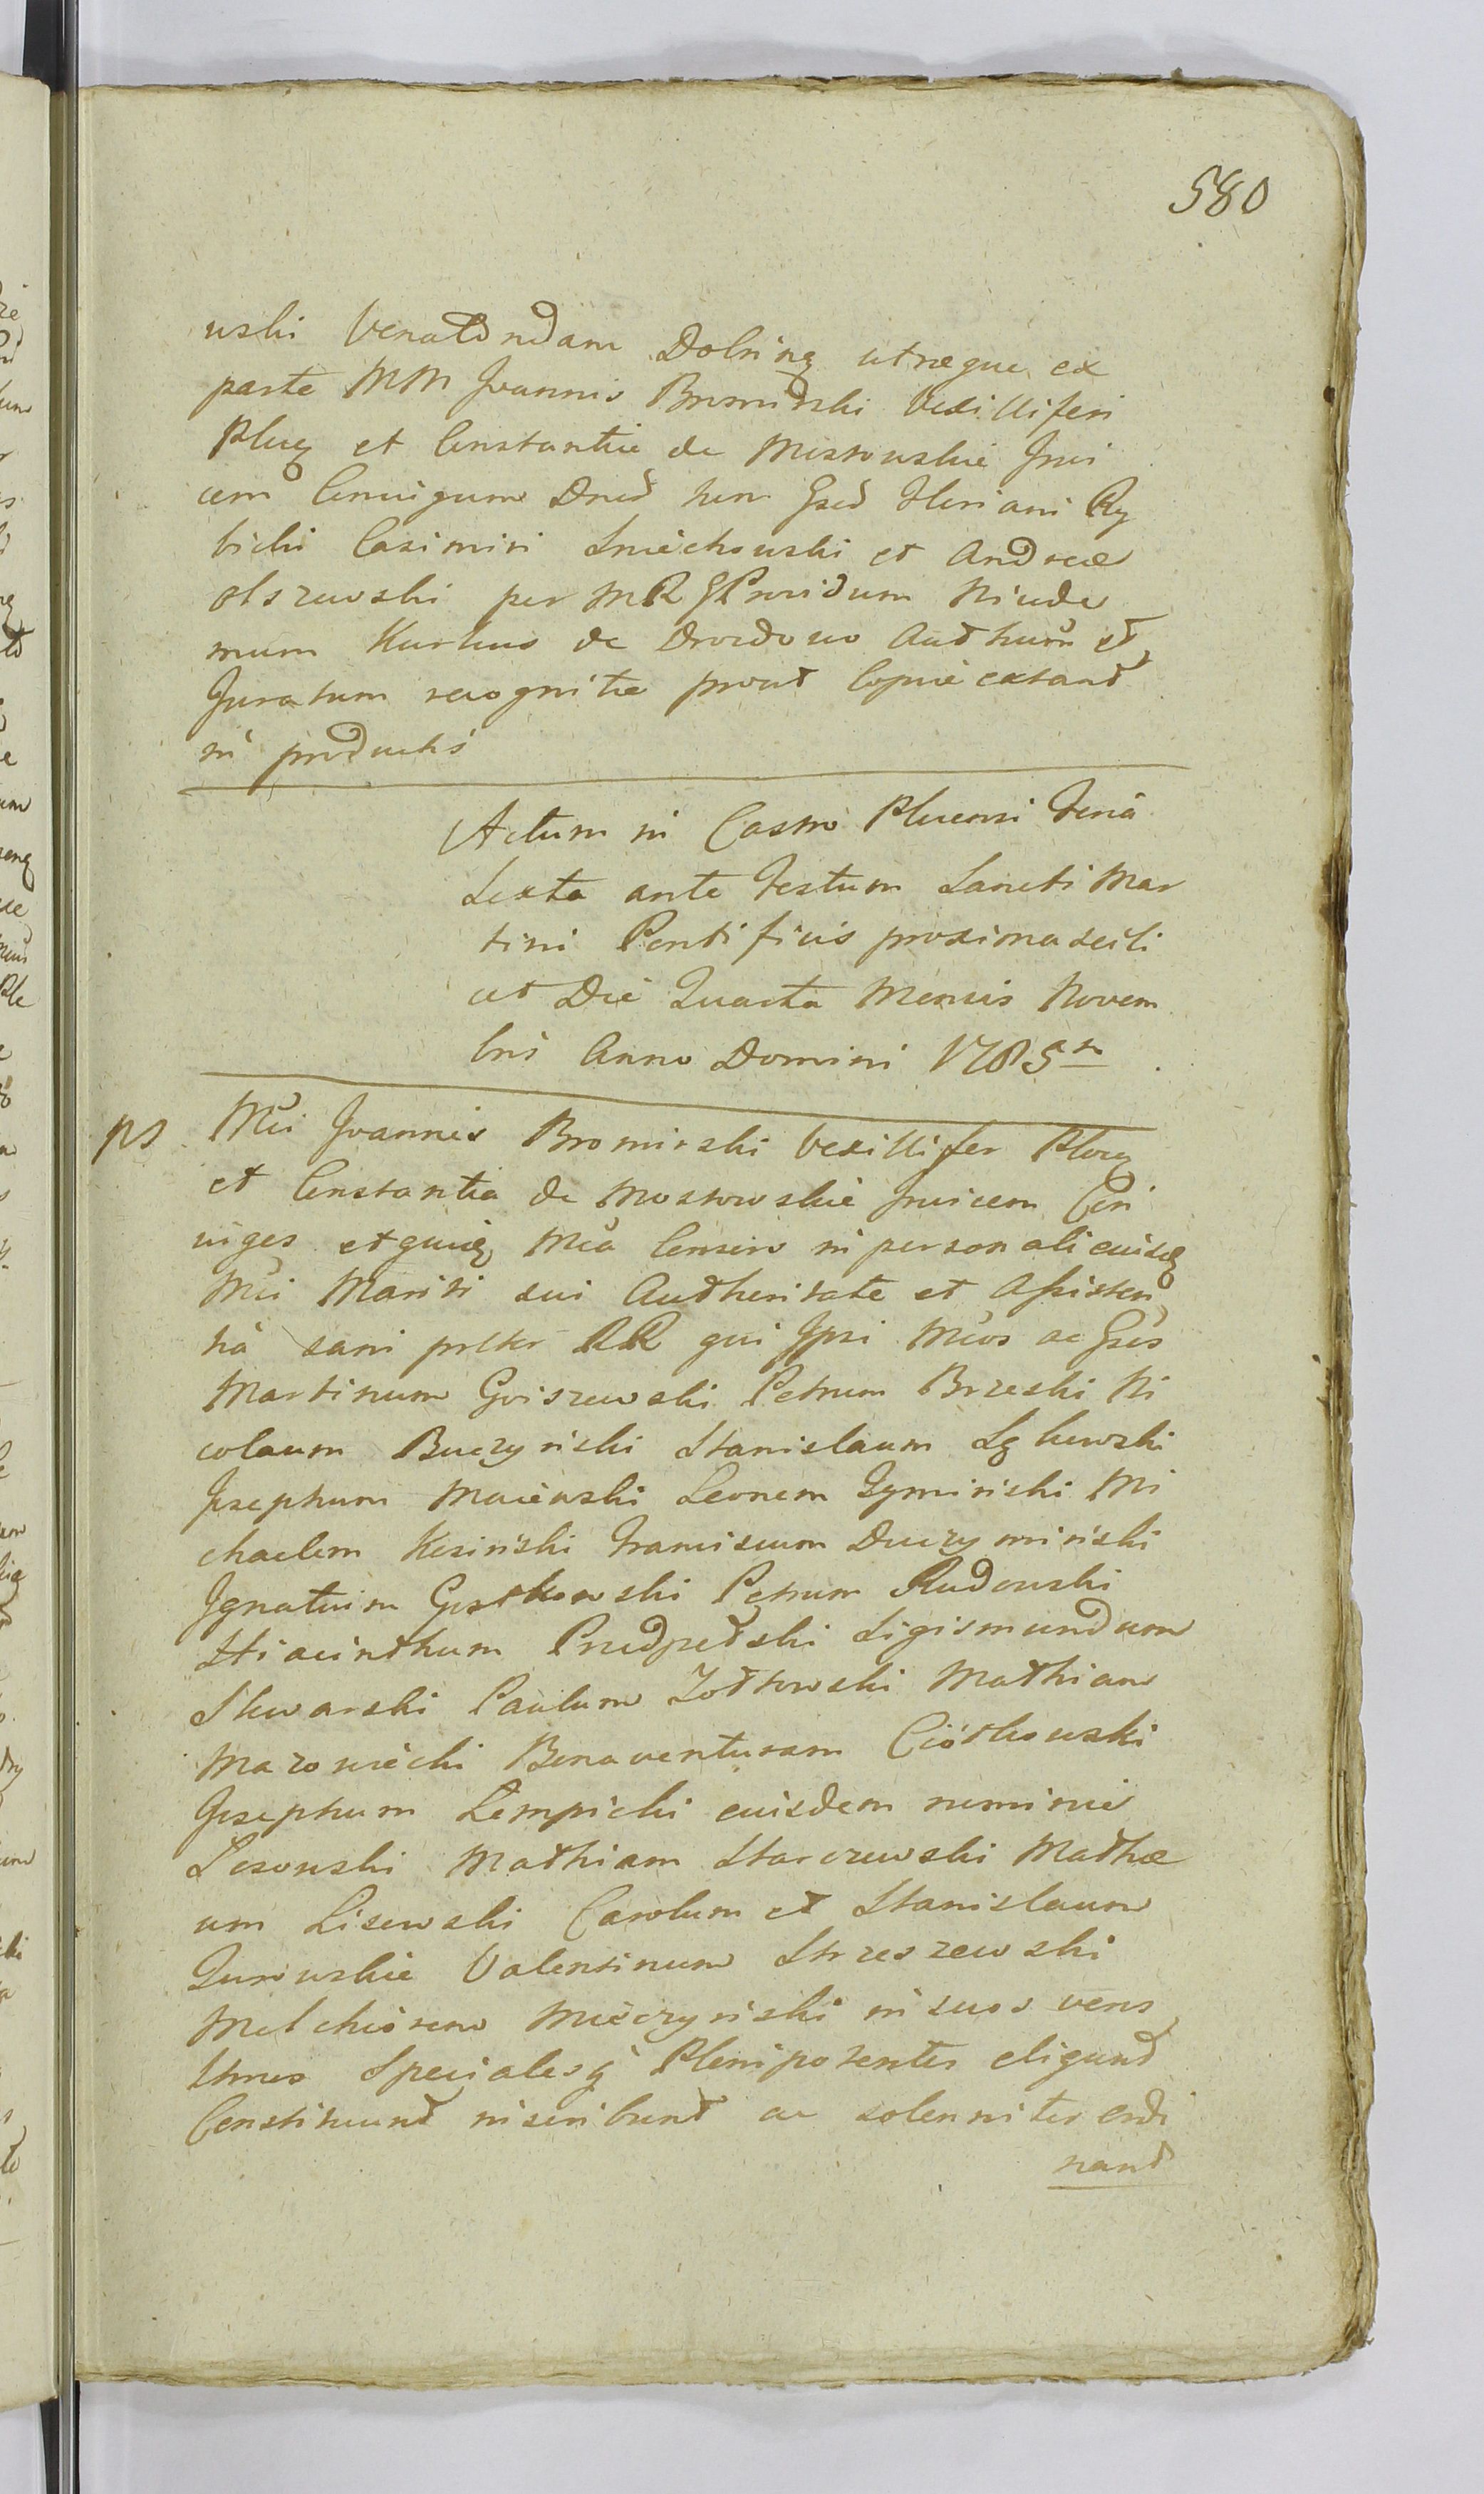 580
wski Venatoridam Dobrinen utraeque ex
parte MM Joannis Bromirski Vexilliferi
Plocen et Constantiae de Mostowskie Invi
cem Conjugum Dnos nen Gsos Floriani Ry
bicki Casimiri Sniechowski et Andreae
Olszewski per MRG Providum Nicode
mum Kurkus de Drozdowo Authum et
Juratum recognitae prout Copiae extant
in productis
Actum in Castro Plocensi Feria
Sexta ante Festum Sancti Mar
tini Pontificis proxima scili
cet Die Quarta Mensis Novem
bris Anno Domini 1785to
ps Mci Joannes Bromirski Vexillifer Plocen
et Constantia de Mostowskie Invicem Con
iuges et quidem Mca Consors in personali eiusd
Mci Mariti sui Authoritate et Assisten
tia sani pltr RR qui Ipsi Mcos ac Gsos
Martinum Goiszewski Petrum Brzeski Ni
colaum Buczynski Stanislaum
Josephum Maiewski Leonem Zyminski Mi
chaelem Kesinski Franciscum Duczyminski
Ignatium Gostkowski Petrum Rudowski
Hiacinthum Podpetski Sigismundum
Skwarski Paulum Zottowski Mathiam
Mazowiecki Bonaventuram Ciotkowski
Josephum Lempicki euisdem nominis
Lesowski Mathiam Starczewski Mathae
um Lisewski Carolum et Stanislaum
Zurowskie Valentinum Strzeszewski
Melchiorem Mieczynski in suos veros
ltmos Specialesq Plenipotentes eligunt
Constituunt inscribunt ac solenniter ordi
nant